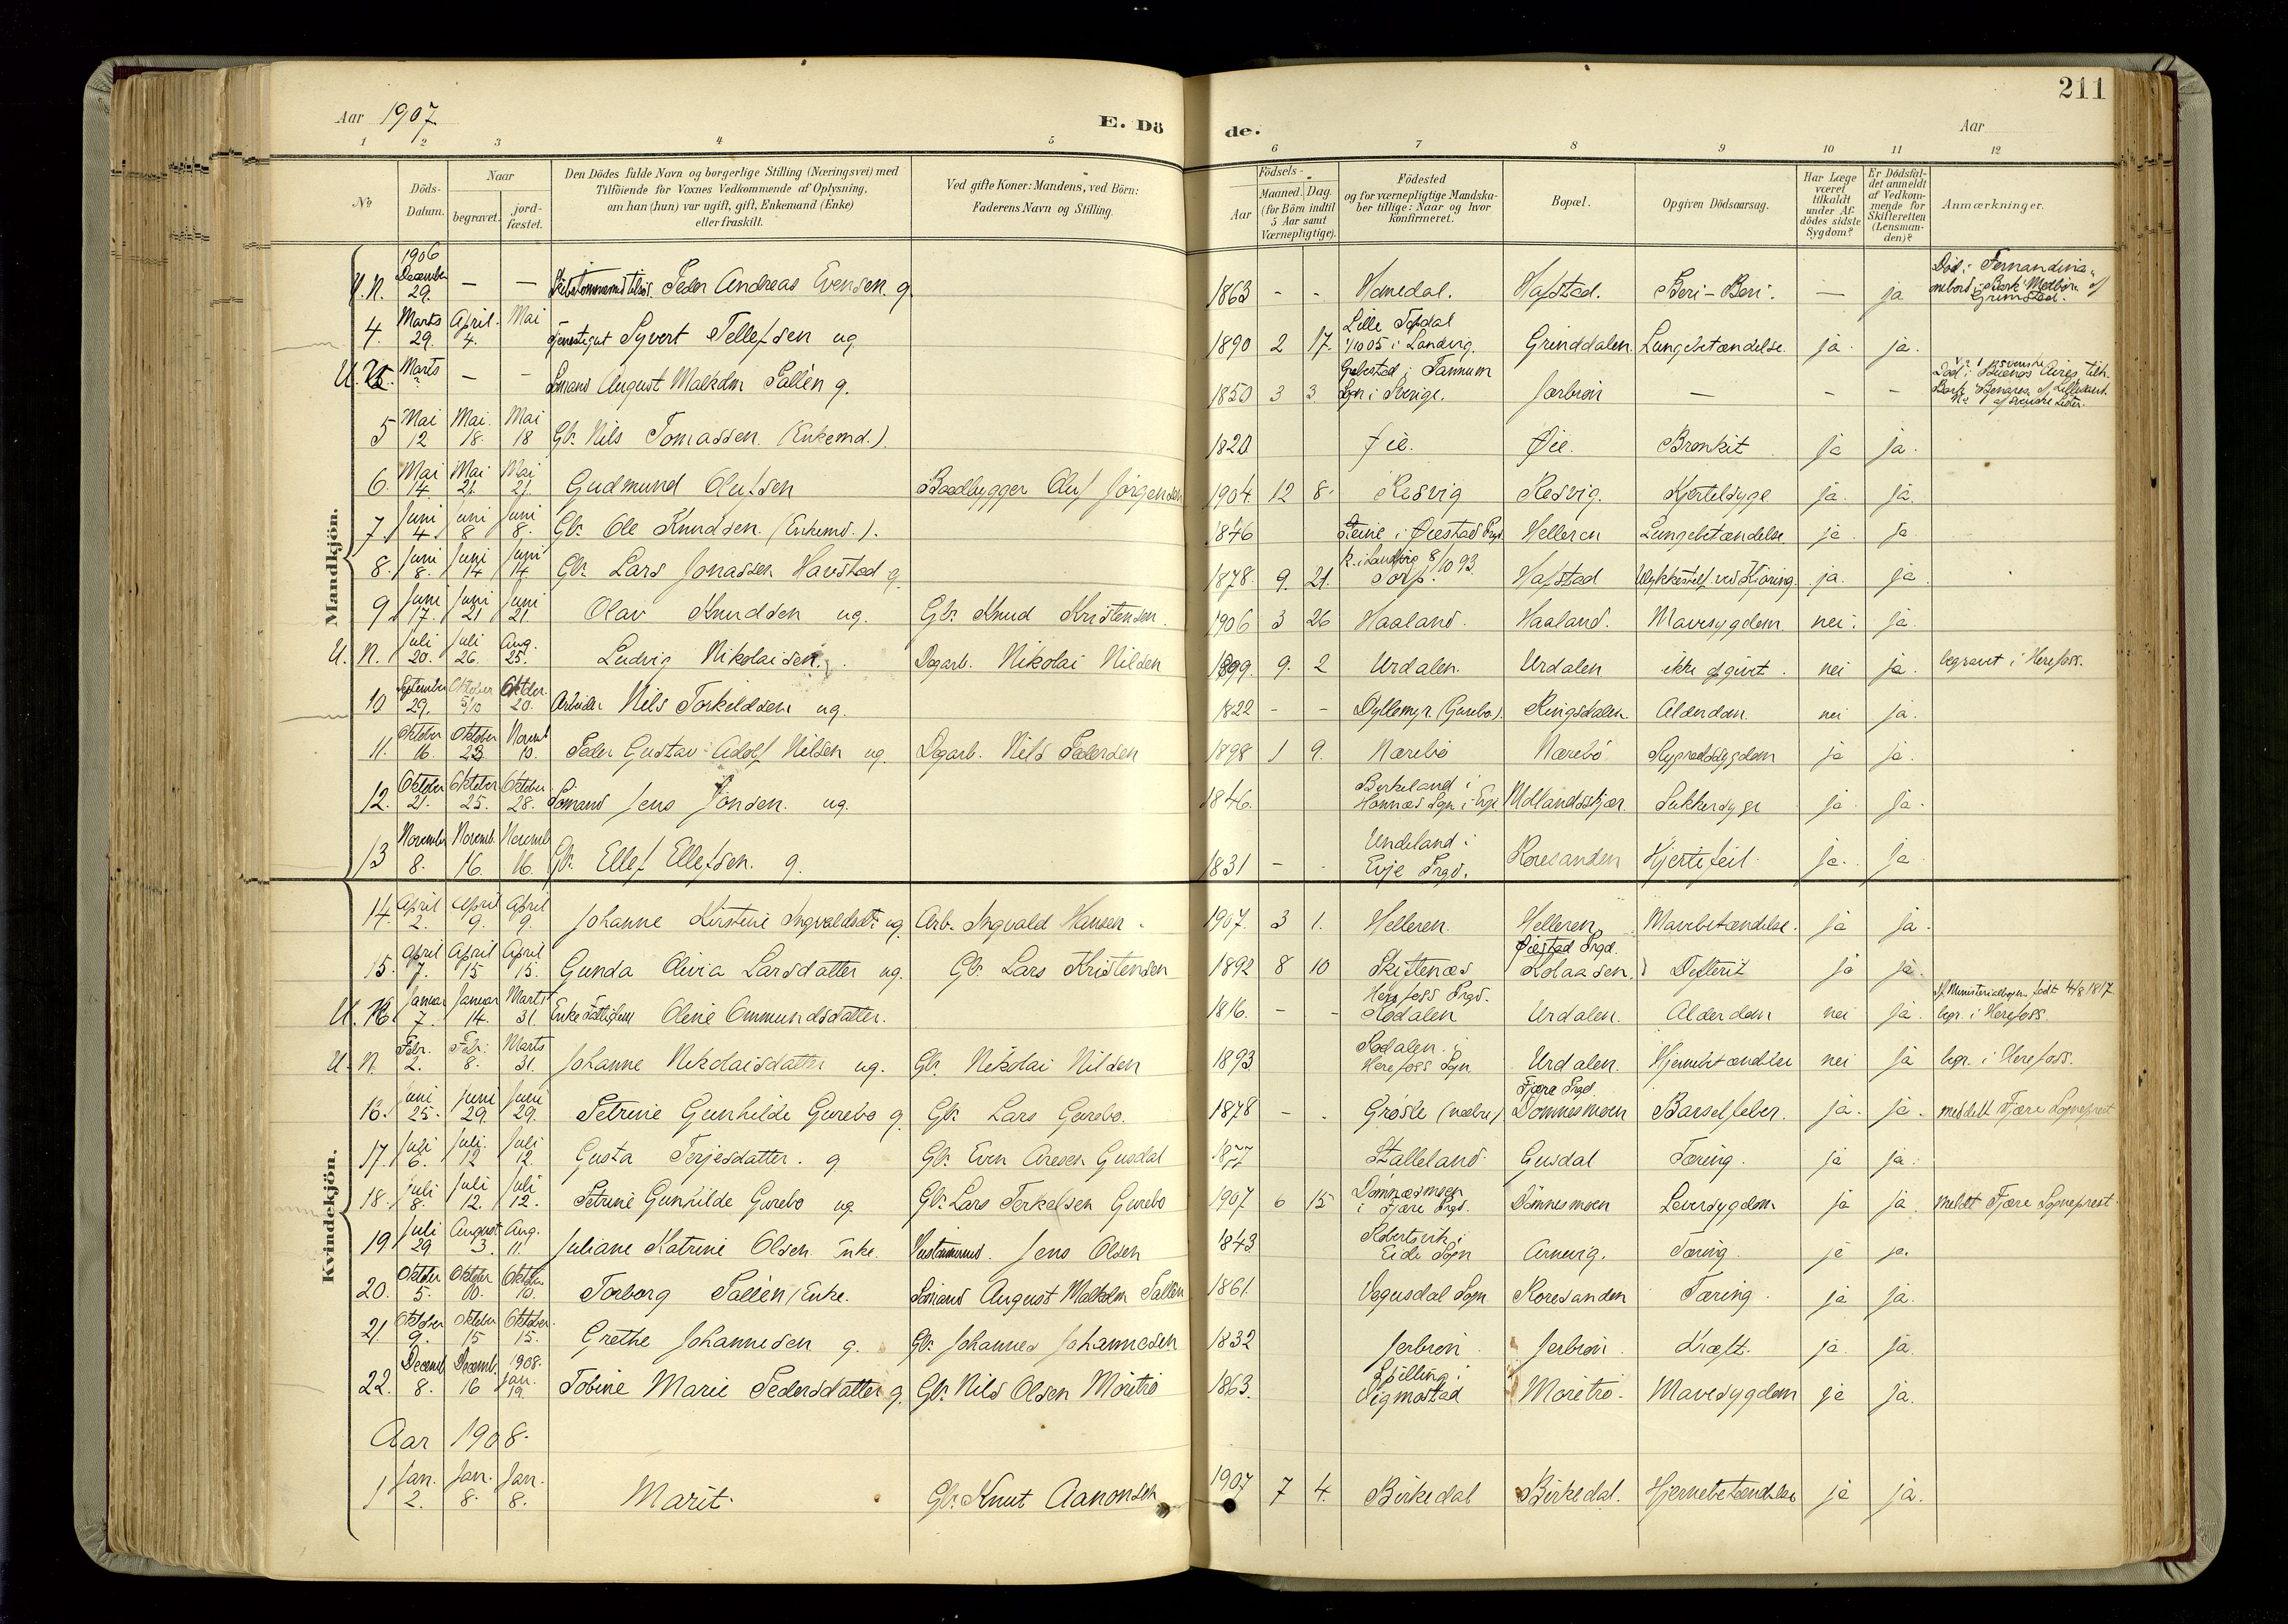 211
Aar 1907
E. Dö
de.
Aar
1 2 3 4 5 6 7 8 9 10 11 12
No
Döds-Datum.
Naar
begravet.
jord-fæstet.
Den Dödes fulde Navn og borgerlige Stilling (Næringsvei) med
Tilföiende for Voxnes Vedkommende af Oplysning,
om han (hun) var ugift, gift, Enkemand (Enke)
eller fraskilt.
Ved gifte Koner: Mandens, ved Börn:
Faderens Navn og Stilling.
Födsels-
Aar
Maaned. Dag.
(for Börn indtil
5 Aar samt
Værnepligtige).
Födested
og for værnepligtige Mandska-
ber tillige: Naar og hvor
konfirmeret.
Bopæl.
Opgiven Dödsaarsag.
Har Læge
været
tilkaldt
under Af-
dödes sidste
Sygdom?
Er Dödsfal-
det anmeldt
af Vedkom-
mende for
Skifteretten
(Lensman-
den)?
Anmærkninger.
Mandkjön.
U.N. 1906 December 29. — — Peder Andreas Evensen. g. 1863 - - Homedal. Hafstad. Beri-Beri. — ja Död i Fernandina, ombord i Bark Grimstad.
4. Marts 29. April 4. Mai Tjenestegut Syvert Tellefsen ug 1890 2 17. Lille Topdal 1/10 05 i Landvig. Grinddalen. Lungebetændelse. ja. ja.
U. Marts - — - Sömand August Malkolm Sallèn g. 1850 3 3 i Tannum Sogn i Sverige. Jorbrön — - - Död i Buenos Aires
5 Mai 12 Mai. 18. Mai 18 Gbr. Nils Tomassen. (Enkemd.). 1820 Øie. Øie. Bronkit ja ja.
6. Mai 14. Mai 21. Mai 21. Gudmund Olufsen Baadbygger Oluf Jörgensen 1904. 12 8. Resvig Resvig. Kjertelsyge ja. ja.
7. Juni 4. Juni 8 Juni 8. Gbr. Ole Knudsen. (Enkemd.). 1846 i Øiestad Prgd. Helleren Lungebetændelse. ja. ja
8. Juni 8. Juni 14 Juni 14 Gbr. Lars Jonassen Havstad g. 1878. 9. 21. K. i Landvig 8/10 93. Torp. Hafstad Ulykkestilf. ved Kjöring. ja. ja
9 Juni 17. Juni 21 Juni 21. Olav Knudsen ug. Gbr. Knud Kristensen. 1906 3 26 Haaland. Haaland. Mavesygdom nei. ja.
U. N. Juli 20. Juli 26. Aug. 25. Ludvig Nikolaisen. Dagarb. Nikolai Nilsen 1899. 9. 2 Urdalen. Urdalen ikke opgivet. nei ja. begravet i Herefoss.
10 September 29. Oktober 5/10 Oktober 20. Arbeider Nils Torkildsen ug. 1822 - - Dyllemyr. (Gurebo). Ringsdalen. Alderdom. nei ja.
11. Oktober 16. Oktober 23 Novemb 10. Peder Gustav Adolf Nilsen ug. Dagarb. Nils Pedersen 1898 1 9. Nærebö Nærebö Rygradssygdom ja ja.
12. Oktober 21. Oktober 25. Oktober 28. Sömand Jens Jonsen. ug. 1846. Birkeland i Hornnæs Sogn i Evje Mollandsskjær. Sukkersyge ja. ja.
13 November 8. Novemb. 16. Novemb 16. Gbr. Ellef Ellefsen. g. 1831 - - Undeland i Evje Prgd. Roresanden Hjertefeil. ja. ja
Kvindekjön.
14. April 2. April 9. April 9. Johanne Kirstine Ingvaldsdtr. ug. Arb. Ingvald Hansen. 1907. 3 1. Helleren. Helleren Mavebetændelse. ja ja.
15. April 7. April 15 April 15. Gunda Olivia Larsdatter ug. Gbr. Lars Kristensen 1892 8 10 Skiftenæs Øiestad Prgd. Difterit ja ja.
U. N. Januar 7. Januar 14. Marts 31. Enke Fattiglem Oline Ommundsdatter. 1816. - - Herefoss Prgd. Urdalen. Alderdom nei ja. Ministerialbogen født 4/8 1817 begr. i Herefoss.
U. N. Febr. 2. Febr. 8. Marts 31. Johanne Nikolaisdatter ug. Gbr. Nikolai Nilsen 1893. i Herefoss Sogn. Urdalen. Hjernebetændelse nei ja begr. i Herefoss.
16. Juni 25. Juni 29. Juni 29. Petrine Gunhilde Gurebo g. Gbr. Lars Gurebo. 1878 - - Grøsle (nedre). Fjære Prgd. Dömmesmoen Barselfeber. ja. ja. meddelt Fjære Sogneprest
17. Juli 6. Juli. 12 Juli 12. Gusta Terjesdatter. g Gbr. Even Aresen Gusdal 1877 Stalleland. Gusdal Tæring. ja ja.
18. Juli 8. Juli 12. Juli 12. Petrine Gunhilde Gurebo ug Gbr. Lars Terkelsen Gurebo 1907 6 15 Dömmesmoen i Fjære Prgd. Dömmesmoen Leversygdom ja ja. meldt Fjære Sogneprest
19. Juli 29 August 3. Aug. 11. Juliane Katrine Olsen Enke. Jens Olsen 1843 i Eide Sogn Arnevig. Tæring. ja ja.
20. Oktober 5. Oktober 10. Oktober 10. Torborg Sallèn Enke. Sömand August Malkolm Sallèn 1861. Vegusdal Sogn Roresanden Tæring. ja ja.
21. Oktober 9. Oktober 15 Oktober 15. Grethe Johannesen g. Gbr. Johannes Johannesen 1832 Jerbrön. Jerbrön. Kræft. ja. ja.
22. Decemb 8. Decemb. 16 1908. Jan. 19. Tobine Marie Pedersdatter g. Gbr. Nils Olsen Möretrö 1863. Spilling i Vigmostad Möretrö. Mavesygdom ja ja.
Aar 1908.
1 Jan. 2. Jan. 8. Jan. 8. Marit. Gbr. Knut Aanonsen 1907 7 4. Birkedal Birkedal. Hjernebetændelse ja ja.